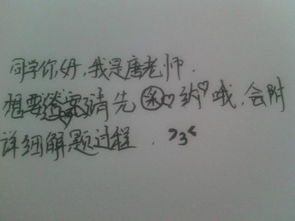 同学你好,我是唐老师.
想要答案请先采纳哦,会附
详细解题过程. >3<